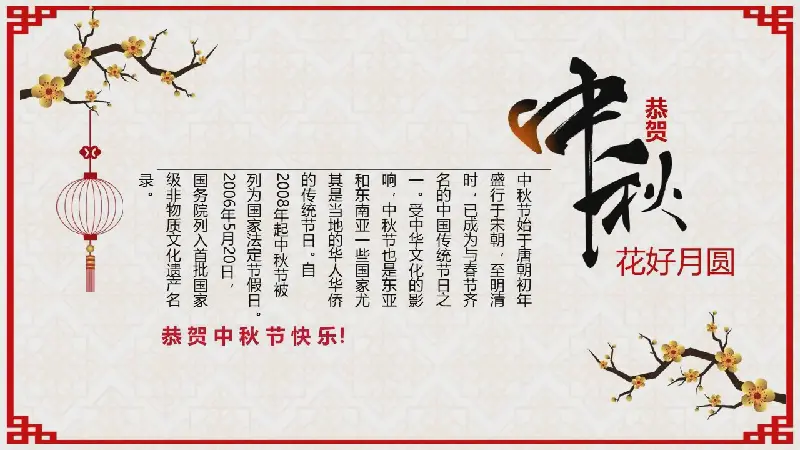 恭贺
中秋
花好月圆
中秋节始于唐朝初年
盛行于宋朝，至明清
时，已成为与春节齐
名的中国传统节日之
一。受中华文化的影
响，中秋节也是东亚
和东南亚一些国家尤
其是当地的华人华侨
的传统节日。自
2008年起中秋节被
列为国家法定节假日。
2006年5月20日，
国务院列入首批国家
级非物质文化遗产名
录。
恭贺中秋节快乐!